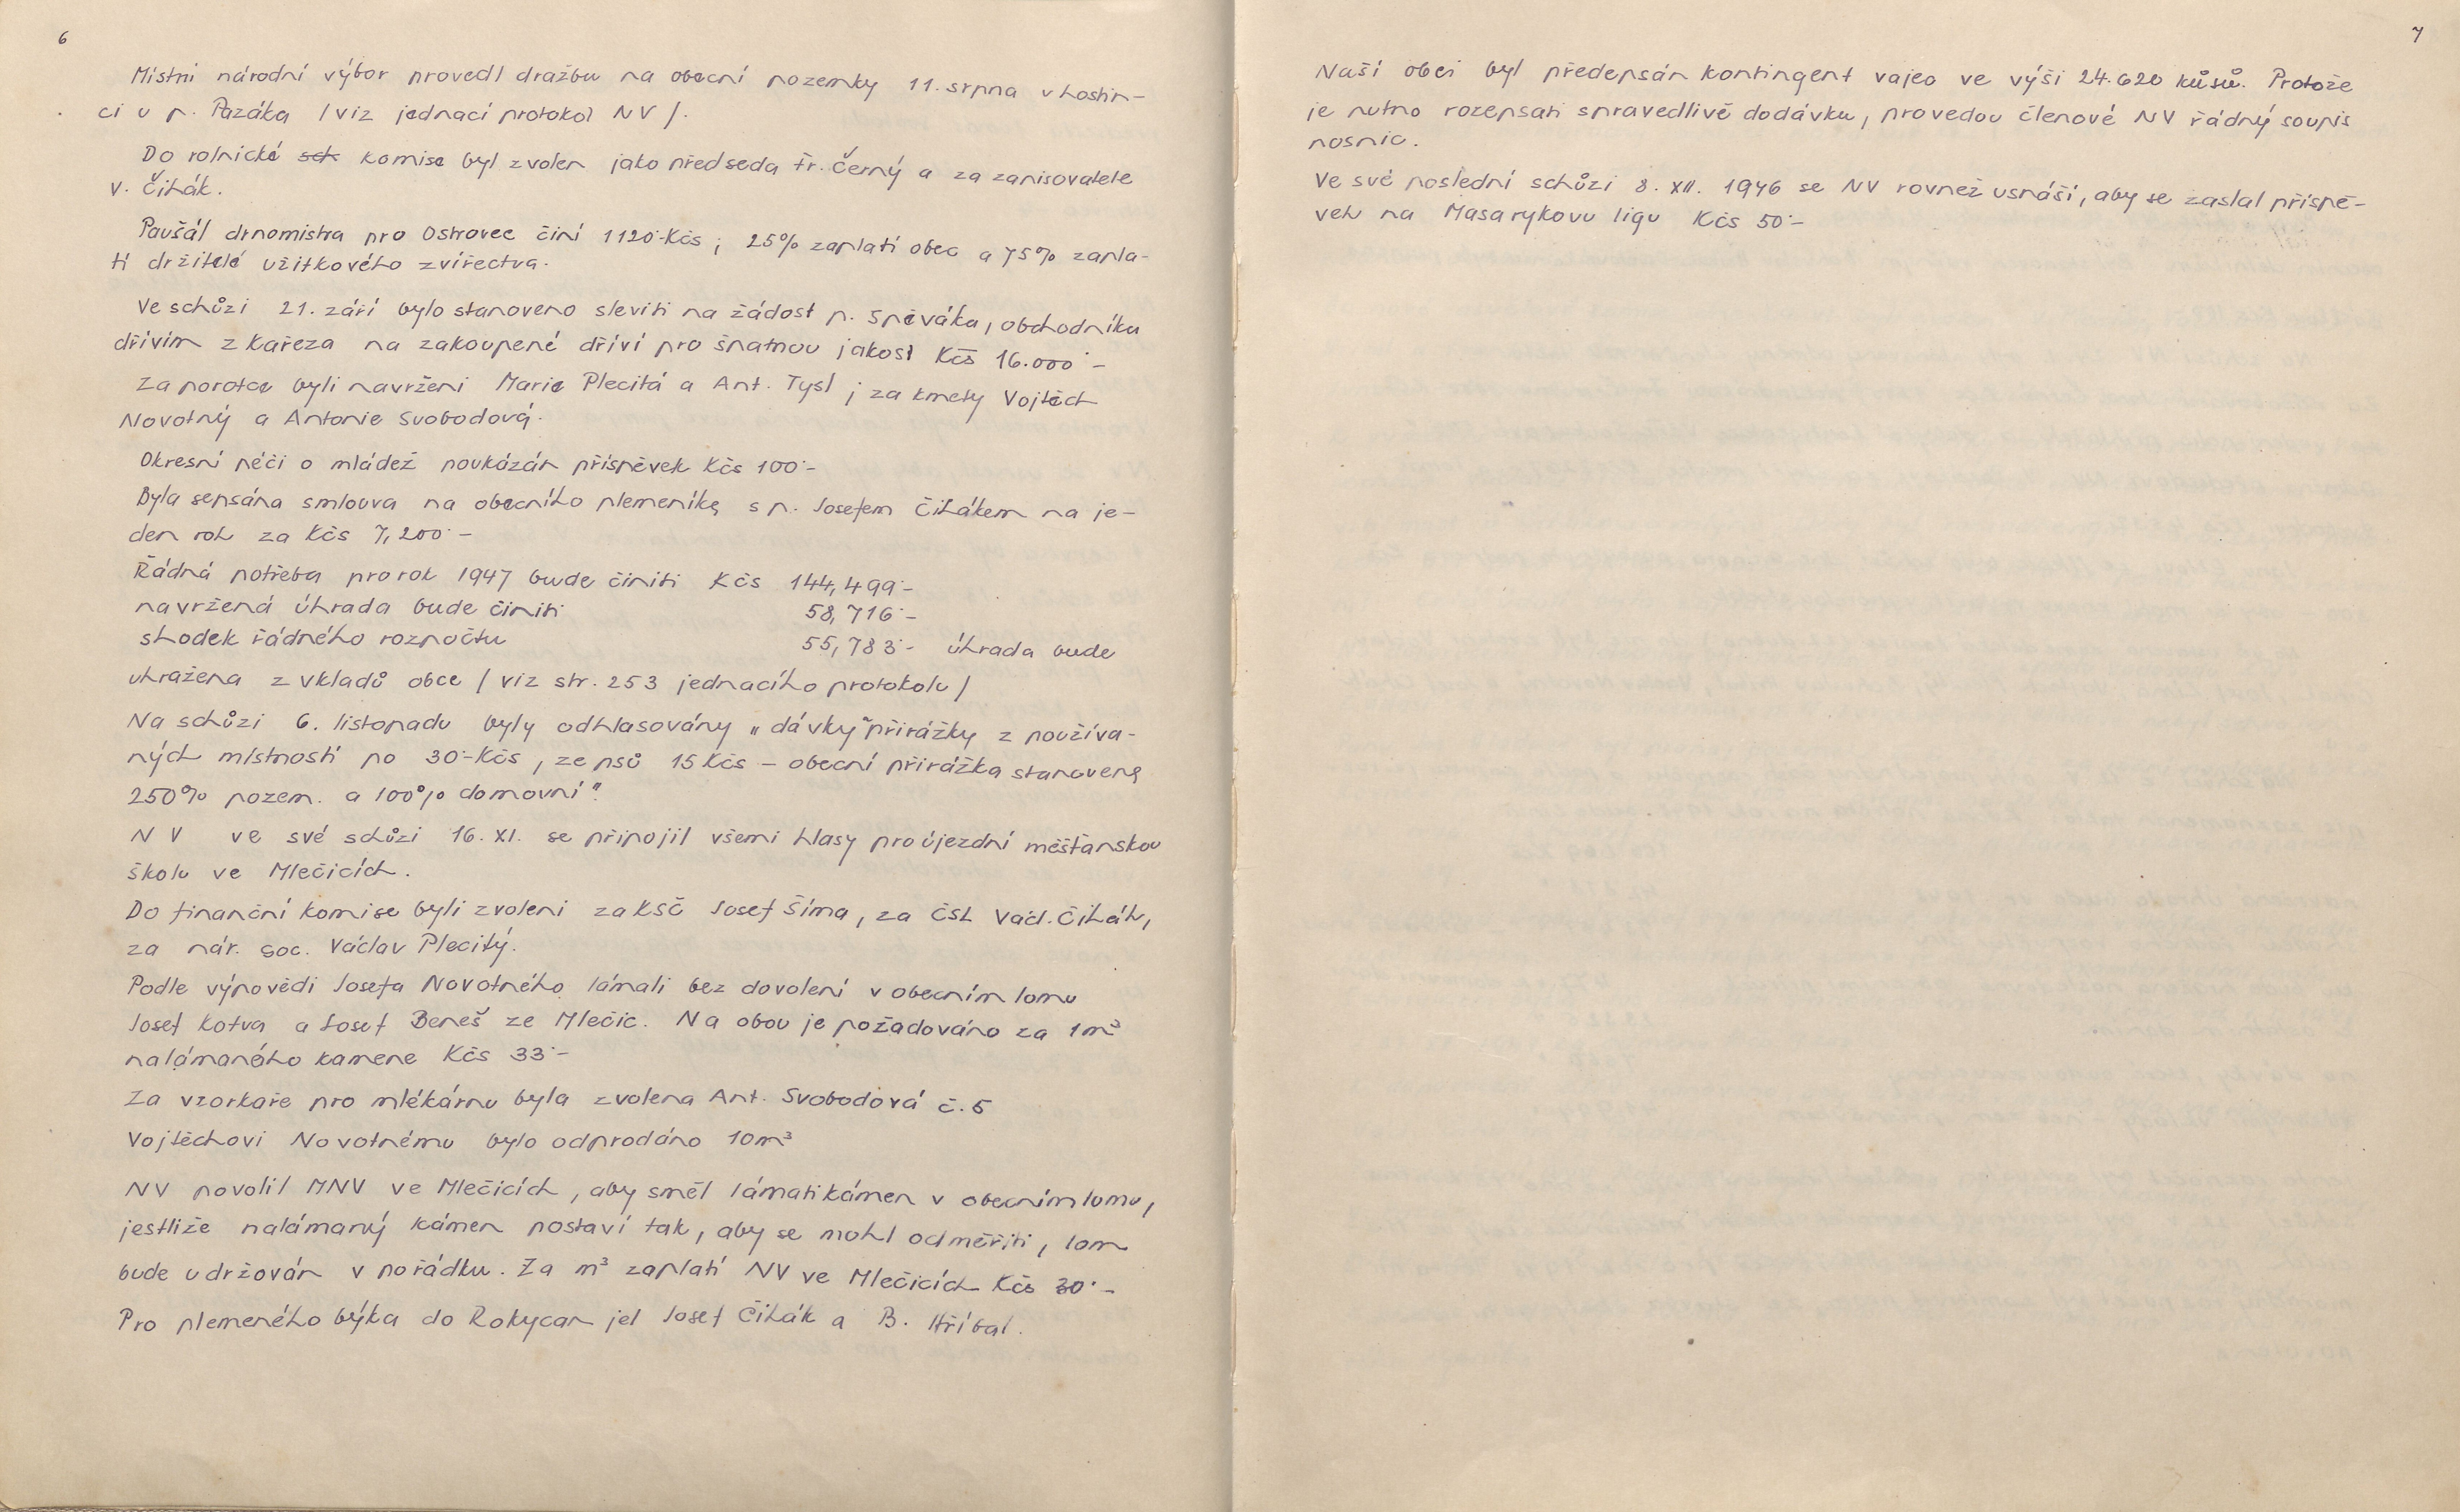 6
Místní národní výbor provedl dražbu na obecní pozemky 11. srpna v hostin-
ci u p. Pazáka /viz jednací protokol NV/.
Do rolnické komise byl zvolen jako předseda Fr. Černý a za zapisovatele
V. Čihák.
Paušál drnomistra pro Ostrovec činí 1120·-Kčs; 25% zaplatí obec a 75% zapla-
tí držitelé užitkového zvířectva.
Ve schůzi 21. září bylo stanoveno sleviti na žádost p. Spěváka, obchodníka
dřívím z Kařeza na zakoupené dříví pro špatnou jakost Kčs 16.000·-
Za porotce byli navrženi Marie Plecitá a Ant. Tysl; za kmety Vojtěch
Novotný a Antonie Svobodová.
Okresní péči o mládež poukázán příspěvek Kčs 100·-
Byla sepsána smlouva na obecního plemeníka s p. Josefem Čihákem na je-
den rok za Kčs 7,200·-
Řádná potřeba pro rok 1947 bude činiti Kčs 144,499·-
navržená úhrada bude činiti 58,716·-
shodek řádného rozpočtu 55,783·- úhrada bude
uhražena z vkladů obce /viz str. 253 jednacího protokolu/
Na schůzi 6. listopadu byly odhlasovány „dávky"přirážky z používa-
ných místností po 30·-Kčs, ze psů 15 Kčs – obecní přirážka stanovena
250% pozem. a 100% domovní".
NV ve své schůzi 16. XI. se připojil všemi hlasy pro újezdní měšťanskou
školu ve Mlečicích.
Do finanční komise byli zvoleni za KSČ Josef Šíma, za ČSL Václ. Čihák,
za nár. soc. Václav Plecitý.
Podle výpovědi Josefa Novotného lámali bez dovolení v obecním lomu
Josef Kotva a Josef Beneš ze Mlečic. Na obou je požadováno za 1m³
nalámaného kamene Kčs 33·-
Za vzorkaře pro mlékárnu byla zvolena Ant. Svobodová č. 5
Vojtěchovi Novotnému bylo odprodáno 10m³
NV povolil MNV ve Mlečicích, aby směl lámati kámen v obecním lomu,
jestliže nalámaný kámen postaví tak, aby se mohl odměřiti, lom
bude udržován v pořádku. Za m³ zaplatí NV ve Mlečicích Kčs 30·-
Pro plemeného býka do Rokycan jel Josef Čihák a B. Hříbal.
7
Naší obci byl předepsán kontingent vajec ve výši 24.620 kůsů. Protože
je nutno rozepsati spravedlivě dodávku, provedou členové NV řádný soupis
nosnic.
Ve své poslední schůzi 8. XII. 1946 se NV rovnež usnáší, aby se zaslal příspě-
vek na Masarykovu ligu Kčs 50·-